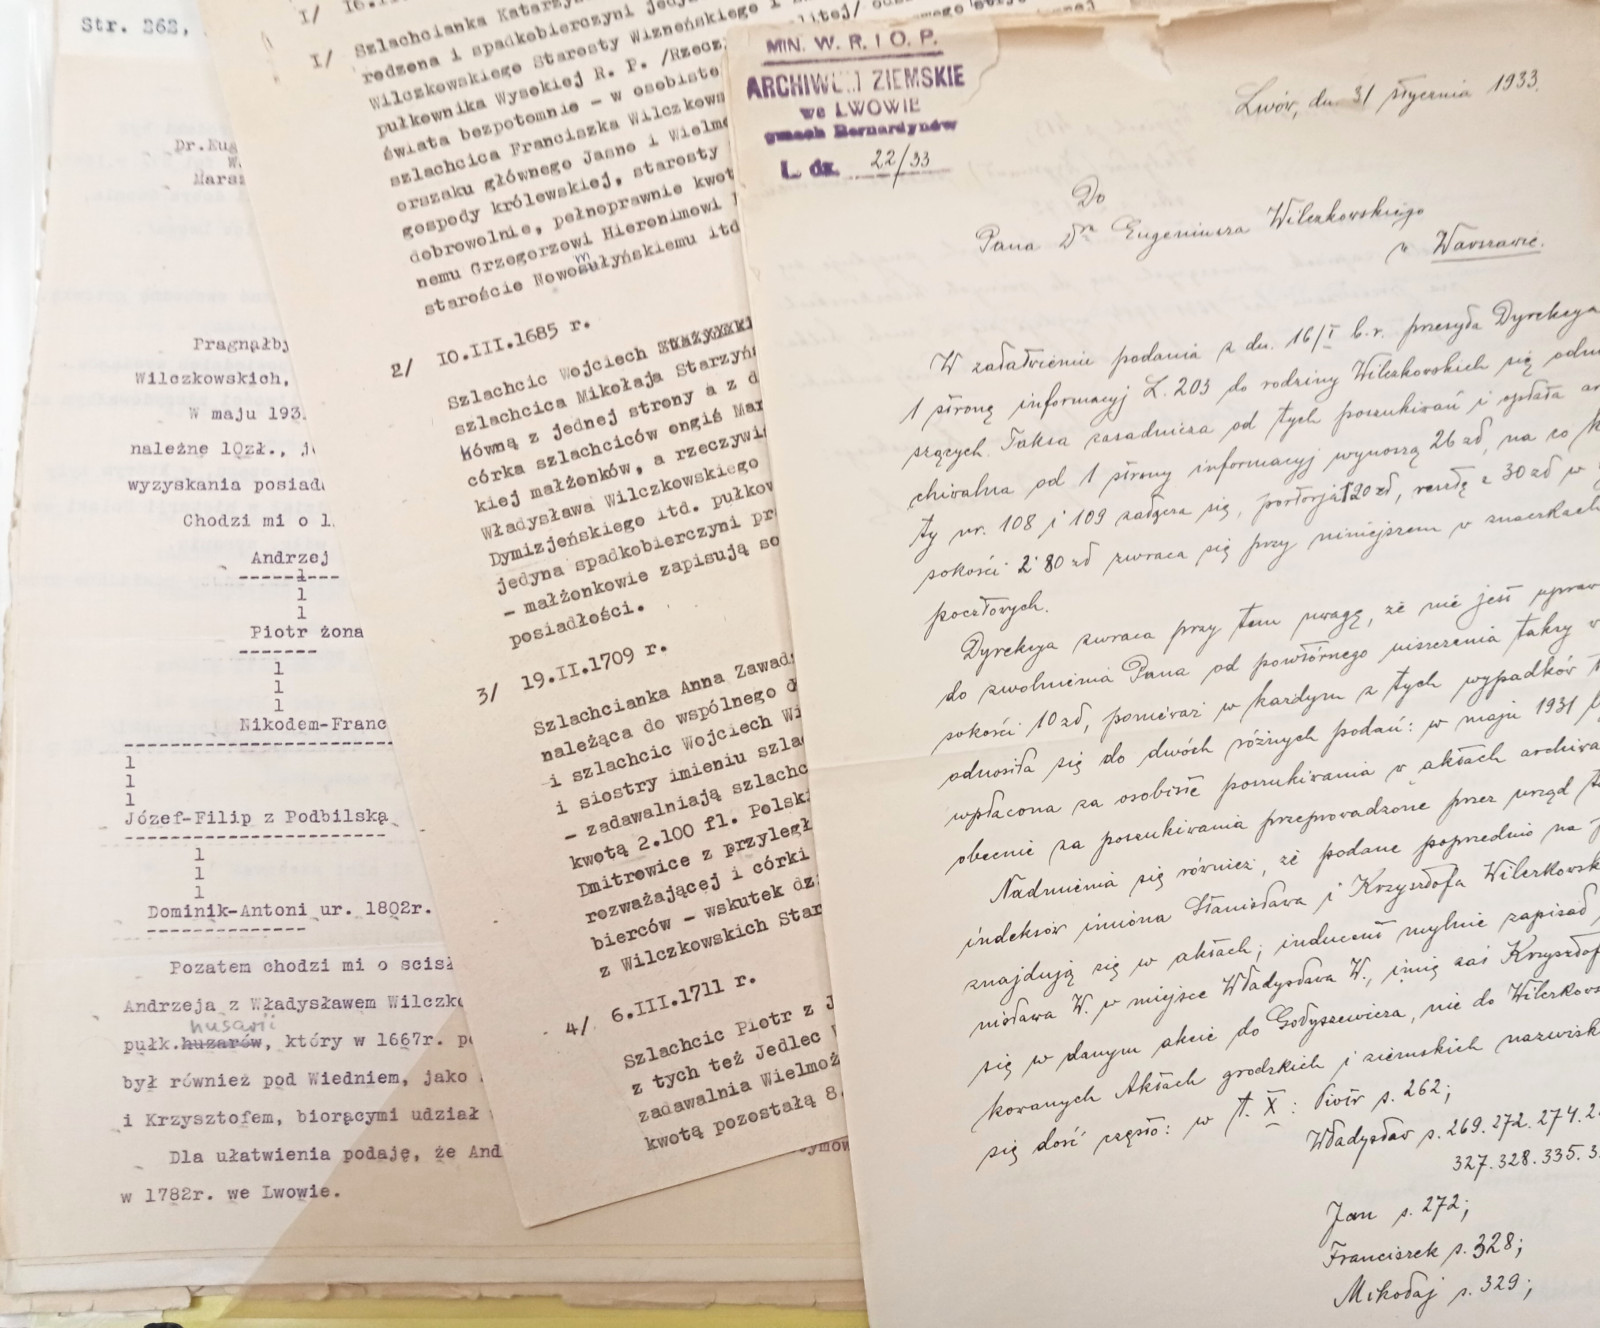 Str. 262,
Dr.Eug
W.
Marsz
Pragnąłby
Wilczkowskich,
W maju 193.
należne 10zł.,
wyzyskania posiada
Chodzi mi o l.
Andrzej
Piotr żona
Nikodem-Franc
Józef-Filip z Podbilską
Dominik-Antoni ur. 1802r.
Pozatem chodzi mi o scisł
Andrzeja z Władysławem Wilczko
husarii
pułk.huzarów, który w 1667r. po
był również pod Wiedniem, jako
i Krzysztofem, biorącymi udział
Dla ułatwienia podaję, że And
w 1782r. we Lwowie.
I/
I/ Szlachcianka Katarzy
redzona i spadkobierczyni jedy
Wilczkowskiego Starosty Wizneńskiego i
pułkownika Wysokiej R. P. /Rzecz
świata bezpotomnie - w osobiste
szlachcica Franciszka Wilczkows
orszaku głównego Jasne i Wielmo
gospody królewskiej, starosty
dobrowolnie, pełnoprawnie kwot
nemu Grzegorzowi Hieronimowi
m
staroście Nowosułyńskiemu itd
2/ 10.III.1685 r.
Szlachcic Wojciech
szlachcica Mikołaja Starzyń
kówną z jednej strony a z d
córka szlachciców ongiś Mar
kiej małżonków, a rzeczywiś
Władysława Wilczkowskiego
Dymizjeńskiego itd. pułkow
jedyna spadkobierczyni pr
- małżonkowie zapisują so
posiadłości.
3/ 19.II.1709 r.
Szlachcianka Anna Zawads
należąca do wspólnego d
i szlachcic Wojciech Wi
i siostry imieniu szla
- zadawalniają szlachc
kwotą 2.100 fl. Polski
Dmitrowice z przyległ
rozważającej i córki
bierców - wskutek dzi
z Wilczkowskich Star
4/ 6.III.1711 r.
Szlachcic Piotr z J
z tych też Jedlec
zadawalnia Wielmoż
kwotą pozostałą 8.
MIN. W. R. I O. P.
ARCHIWUM ZIEMSKIE
we LWOWIE
gmach Bernardynów
L. dz. 22/33
Lwów, dn. 31 stycznia 1933.
Do
Pana Dra Eugeniusza Wilczkowskiego
w Warszawie.
W załatwieniu podania z dn. 16/I b.r. przesyła Dyrekcja
1 stronę informacyj L. 203 do rodziny Wilczkowskich się odno
szących. Taksa zasadnicza od tych poszukiwań i opłata ar
chiwalna od 1 strony informacyj wynoszą 26 zł, na co k
ty nr. 108 i 109 załącza się, portorja 1·20 zł, resztę z 30 zł w
sokości 2·80 zł zwraca się przy niniejszem w znaczkach
pocztowych.
Dyrekcja zwraca przy tem uwagę, że nie jest upraw
do zwolnienia Pana od powtórnego uiszczenia taksy w
sokości 10 zł, ponieważ w każdym z tych wypadków t
odnosiła się do dwóch różnych podań: w maju 1931 b
wpłacona za osobiste poszukiwania w aktach archiwa
obecnie za poszukiwania przeprowadzone przez urząd t
Nadmienia się również, że podane poprzednio na p
indeksów imiona Stanisława i Krzysztofa Wilczkowsk
znajdują się w aktach; inducent mylnie zapisał
nisława W. w miejsce Władysława W., imię zaś Krzysztof
się w danym akcie do Godyszewicza, nie do Wilczkows
kowanych Aktach grodzkich i ziemskich nazwisk
się dość często: w t. X: Piotr s. 262;
Władysław s. 269. 272. 274. 2
327. 328. 335. 3
Jan s. 272;
Franciszek s. 328;
Mikołaj s. 329;